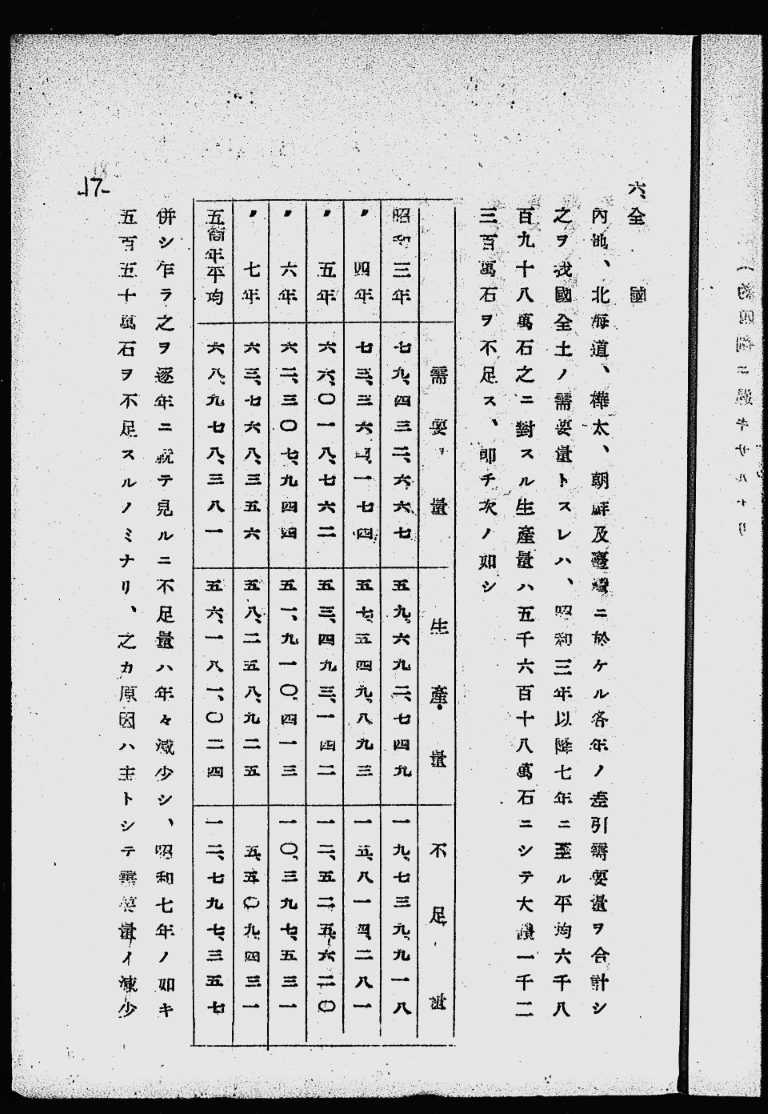 六、全國
內地、北海道、樺太、朝鮮及臺灣ニ於ケル各年ノ差引需要量ヲ合計シ
之ヲ我國全土ノ需要量トスレハ、昭和三年以降七年ニ至ル平均六千八
百九十八萬石之ニ對スル生產量ハ五千六百十八萬石ニシテ大體一千二
三百萬石ヲ不足ス、卽チ次ノ如シ
需要量 生產量 不足量
昭和三年 七九、四三二、六六七 五九、六九二、七四九 一九、七三九、九一八
〃四年 七三、三六四、一七四 五七、五四九、八九三 一五、八一四、二八一
〃五年 六六、〇一八、七六二 五三、四九三、一四二 一二、五二五、六二〇
〃六年 六二、三〇七、九四四 五一、九一〇、四一三 一〇、三九七、五三一
〃七年 六三、七六八、三五六 五八、二五八、九二五 五、五〇九、四三一
五箇年平均 六八、九七八、三八一 五六、一八一、〇二四 一二、七九七、三五七
併シ乍ラ之ヲ逐年ニ就テ見ルニ不足量ハ年々減少シ、昭和七年ノ如キ
五百五十萬石ヲ不足スルノミナリ、之カ原因ハ主トシテ需要量ノ減少
-17-